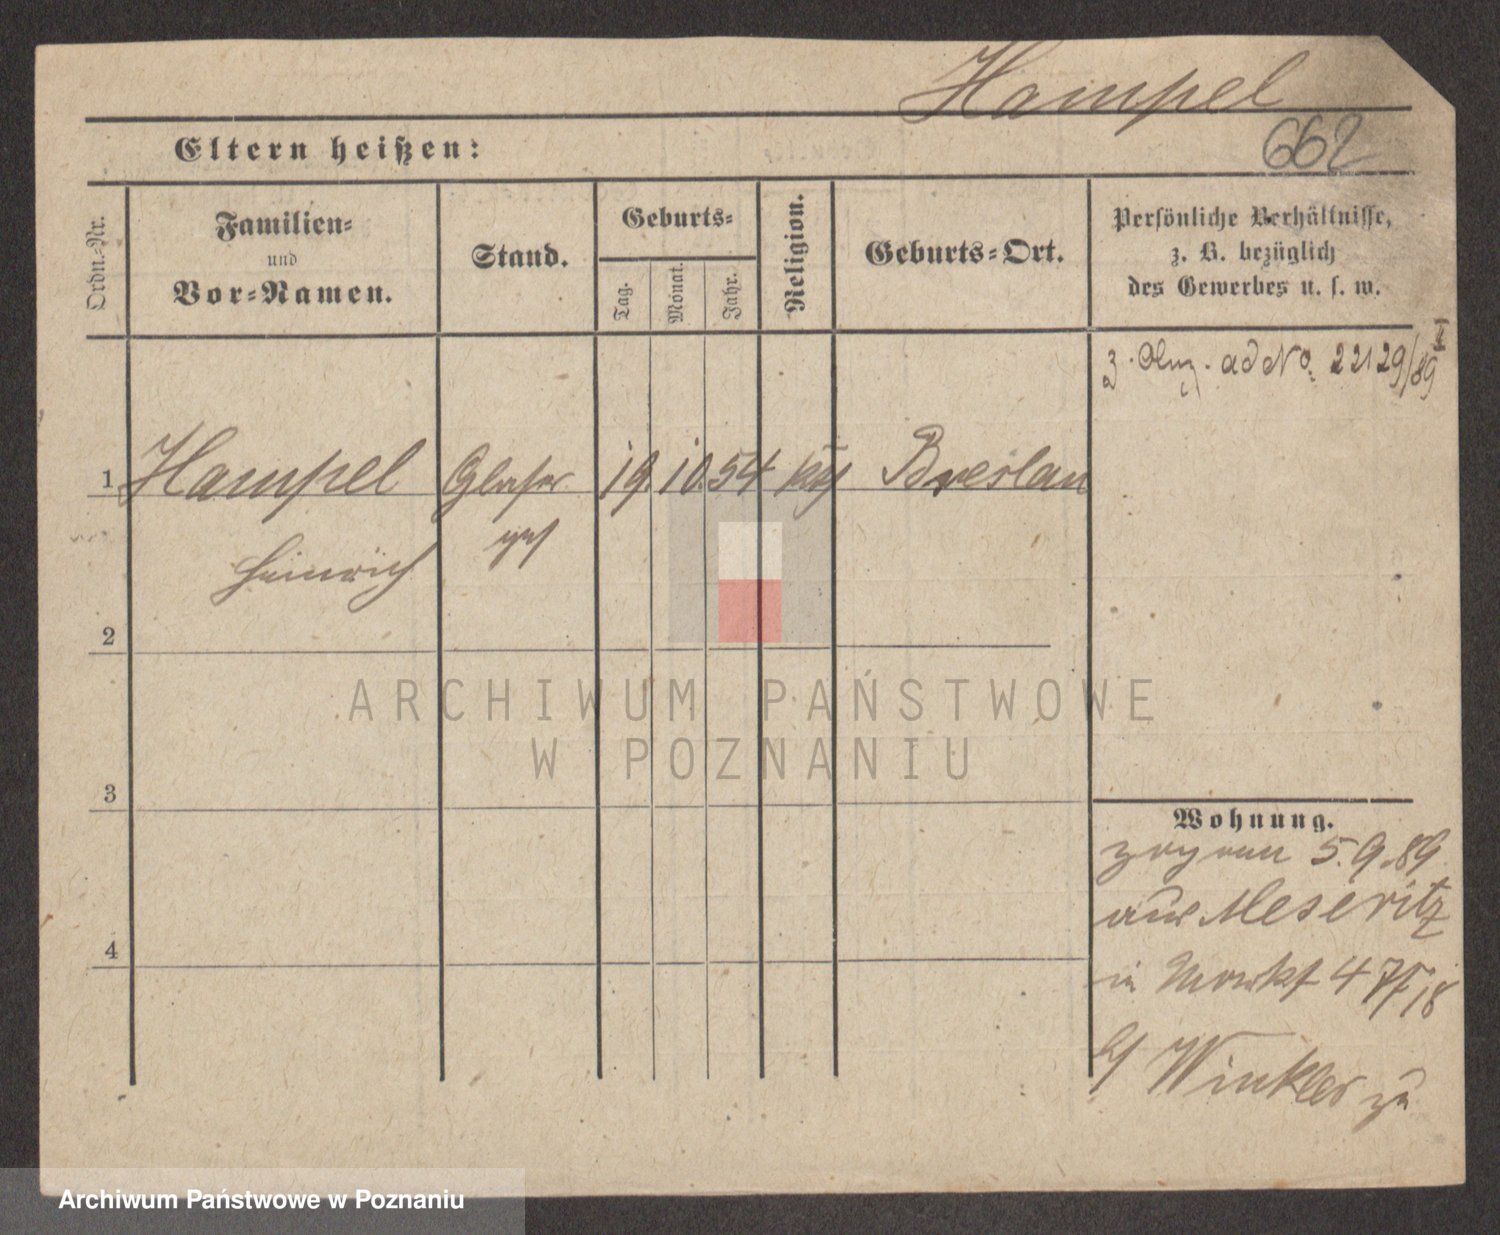 Hampel
662
Eltern heißen:
Ordn.-Nr.
Familien-
und
Vor-Namen.
Stand.
Geburts-
Tag.
Monat.
Jahr.
Religion.
Geburts-Ort.
Persönliche Verhältnisse,
z. B. bezüglich
des Gewerbes u. s. w.
z. Anz. ad No. 22129/89 I
1 Hampel Glaser 19. 10. 54 kth Breslau
Heinrich
2
3
4
Wohnung.
5.9.89
aus Meseritz
in Markt 47
b/ Winkler zu
ARCHIWUM PAŃSTWOWE
W POZNANIU
Archiwum Państwowe w Poznaniu